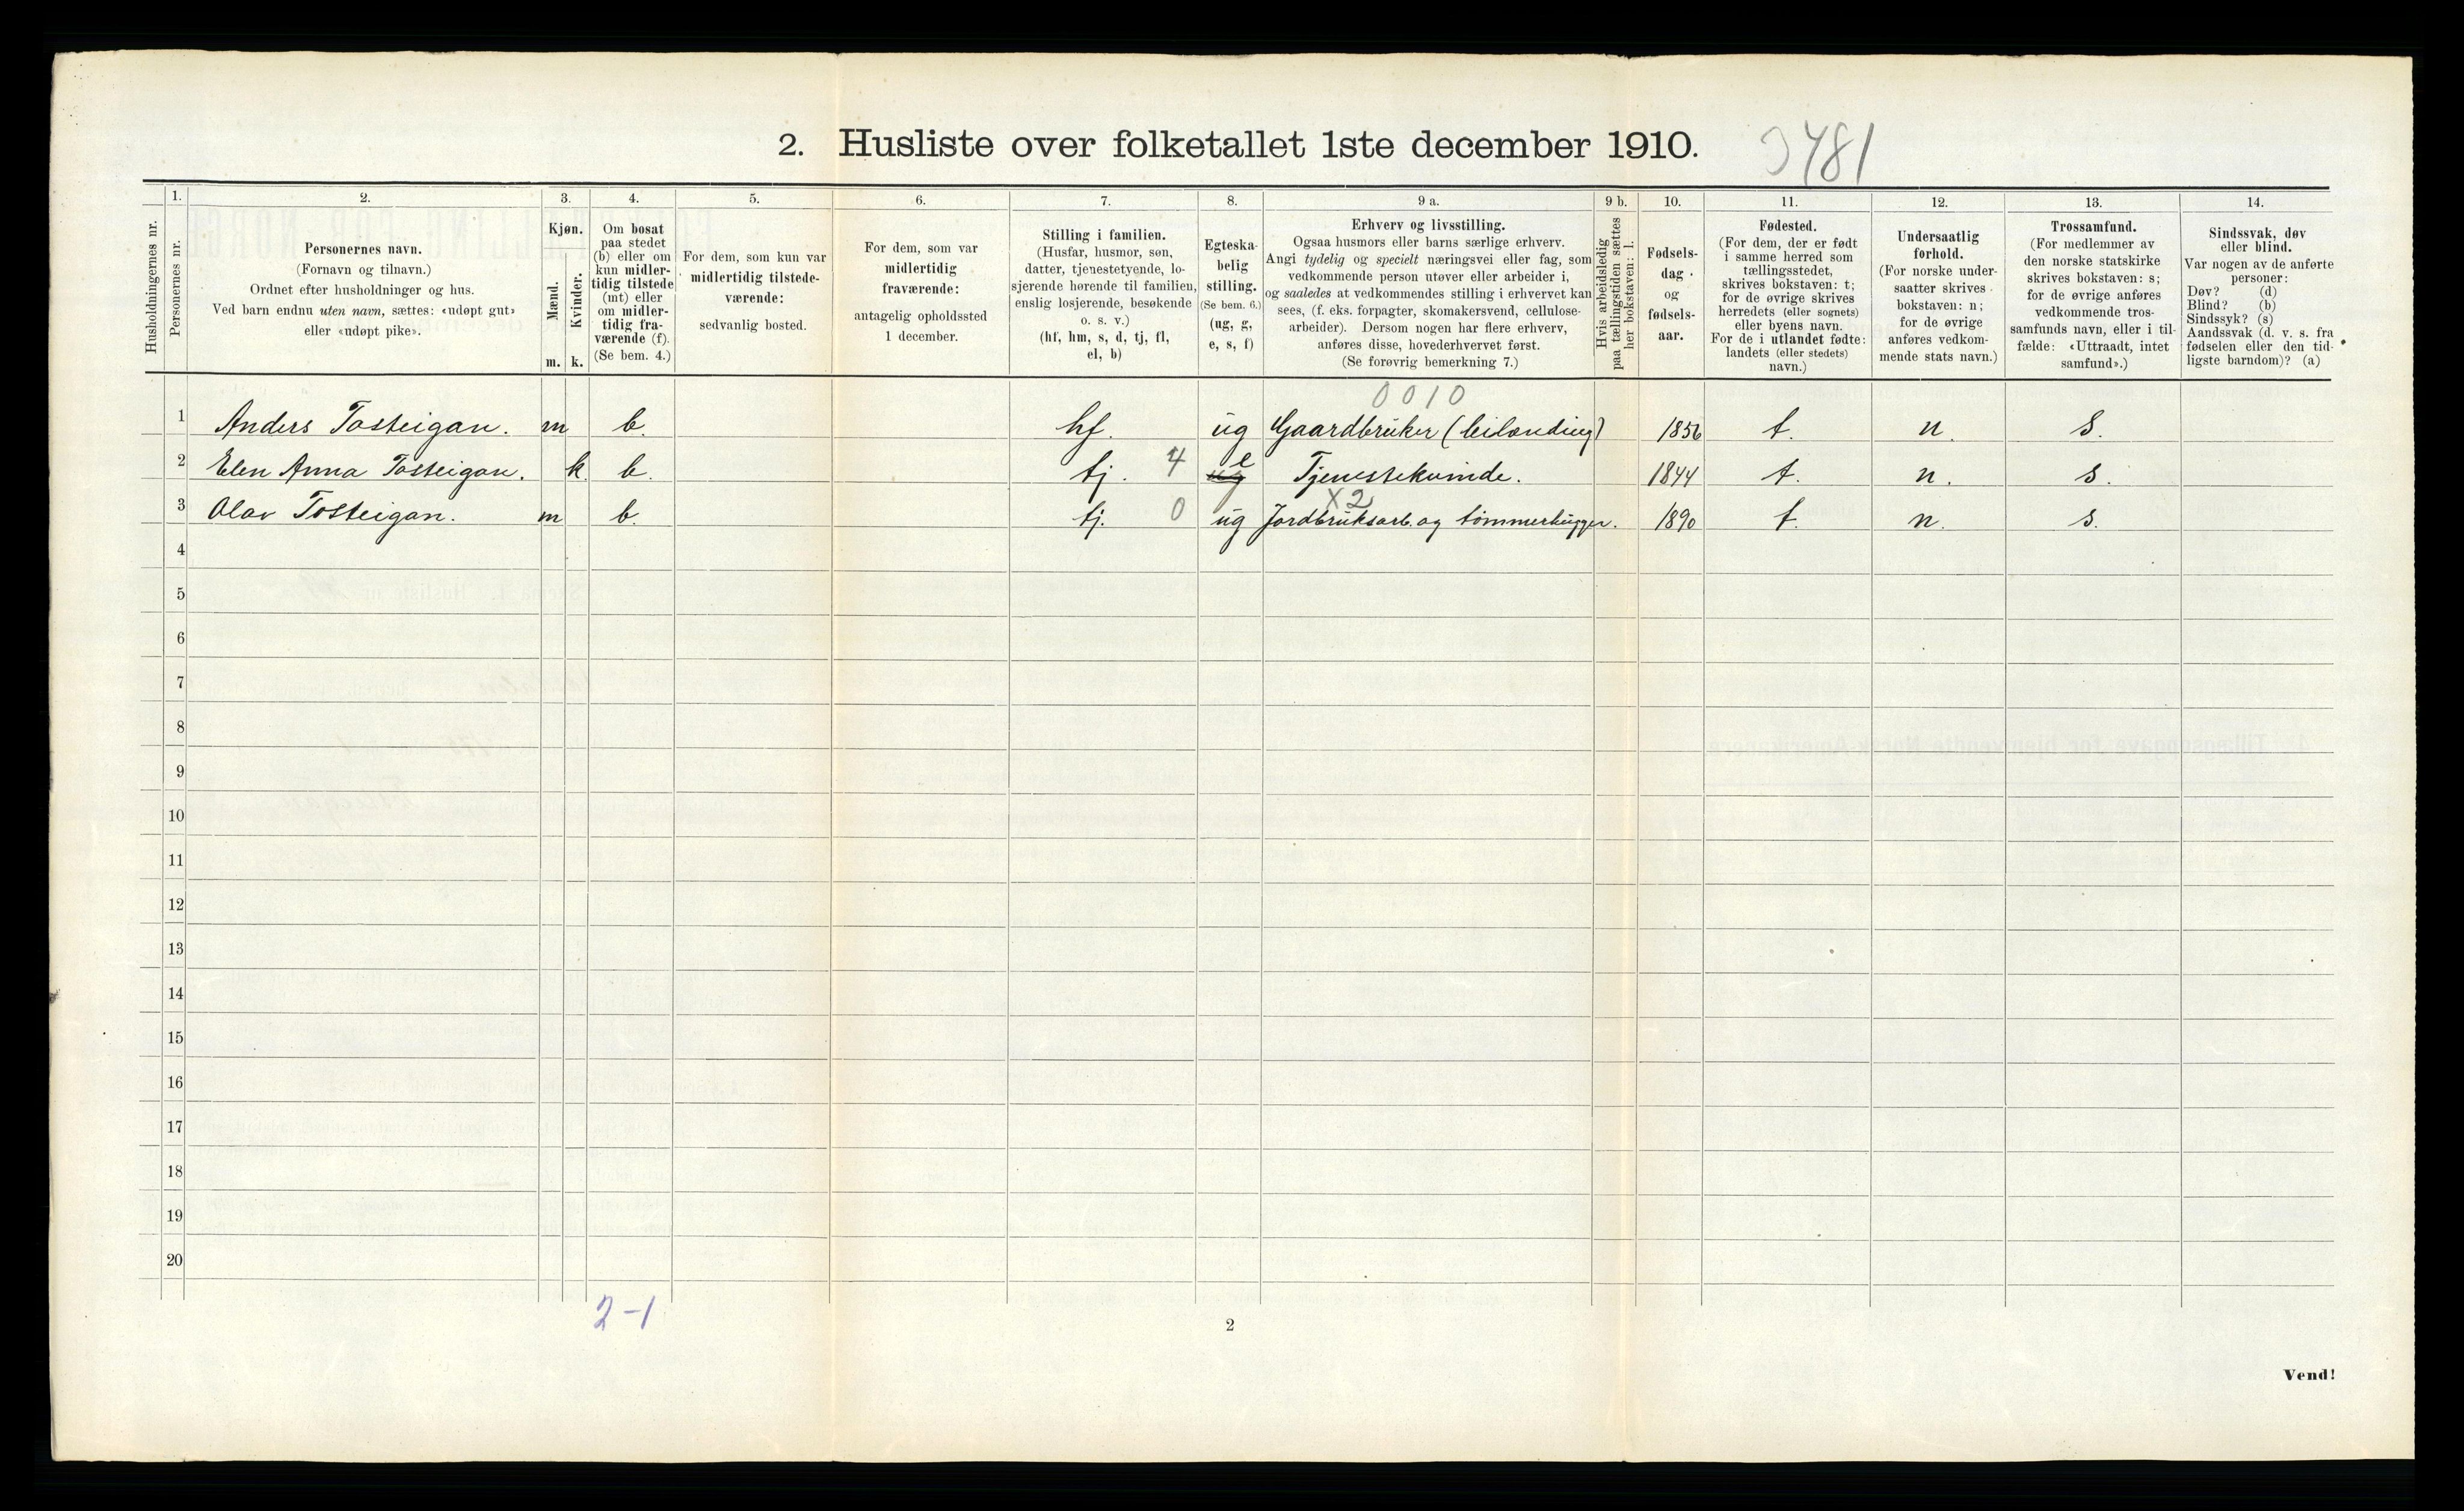 2. Husliste over folketallet 1ste december 1910. 3481
Husholdningernes nr.
1.
Personernes nr.
2.
Personernes navn.
(Fornavn og tilnavn.)
Ordnet efter husholdninger og hus.
Ved barn endnu uten navn, sættes: «udøpt gut»
eller «udøpt pike».
3.
Kjøn.
Mænd.
Kvinder.
m. k.
4.
Om bosat
paa stedet
(b) eller om
kun midler-
tidig tilstede
(mt) eller
om midler-
tidig fra-
værende (f).
(Se bem. 4.)
5.
For dem, som kun var
midlertidig tilstede-
værende:
sedvanlig bosted.
6.
For dem, som var
midlertidig
fraværende:
antagelig opholdssted
1 december.
7.
Stilling i familien.
(Husfar, husmor, søn,
datter, tjenestetyende, lo-
sjerende hørende til familien,
enslig losjerende, besøkende
o. s. v.)
(hf, hm, s, d, tj, fl,
el, b)
8.
Egteska-
belig
stilling.
(Se bem. 6.)
(ug, g,
e, s, f)
9 a.
Erhverv og livsstilling.
Ogsaa husmors eller barns særlige erhverv.
Angi tydelig og specielt næringsvei eller fag, som
vedkommende person utøver eller arbeider i,
og saaledes at vedkommendes stilling i erhvervet kan
sees, (f. eks. forpagter, skomakersvend, cellulose-
arbeider). Dersom nogen har flere erhverv,
anføres disse, hovederhvervet først.
(Se forøvrig bemerkning 7.)
9 b.
Hvis arbeidsledig
paa tællingstiden sættes
her bokstaven: l.
10.
Fødsels-
dag
og
fødsels-
aar.
11.
Fødested.
(For dem, der er født
i samme herred som
tællingsstedet,
skrives bokstaven: t;
for de øvrige skrives
herredets (eller sognets)
eller byens navn.
For de i utlandet fødte:
landets (eller stedets)
navn.)
12.
Undersaatlig
forhold.
(For norske under-
saatter skrives
bokstaven: n;
for de øvrige
anføres vedkom-
mende stats navn.)
13.
Trossamfund.
(For medlemmer av
den norske statskirke
skrives bokstaven: s;
for de øvrige anføres
vedkommende tros-
samfunds navn, eller i til-
fælde: «Uttraadt, intet
samfund».)
14.
Sindssvak, døv
eller blind.
Var nogen av de anførte
personer:
Døv? (d)
Blind? (b)
Sindssyk? (s)
Aandssvak (d. v. s. fra
fødselen eller den tid-
ligste barndom)? (a)
0010
1 Anders Tosteigan. m b. hf. ug Gaardbruker (leilænding) 1856 t. n. s.
2 Elen Anna Tosteigan. k b. tj. 4 ug e Tjenestekvinde. 1844 t. n. s.
X2
3 Olav Tosteigan. m b. tj. 0 ug Jordbruksarb. og tømmerhugger. 1890 t. n. s.
4
5
6
7
8
9
10
11
12
13
14
15
16
17
18
19
20
2-1
2
Vend!